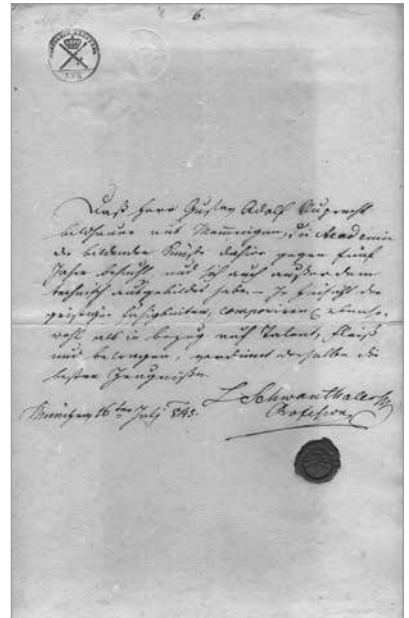 6.
Daß Herr Gustav Adolf Ruprecht
Bildhauer aus Memmingen, die Academie
der bildenden Künste dahier gegen fünf
Jahre besucht und sich auch außer dem
technisch ausgebildet habe. – In Hinsicht der
geistigen Fähigkeiten, componiren ebenso-
wohl als in bezug auf Talent, Fleiß
und betragen, verdient derselbe die
besten Zeugniße.
München 16ten July 1845.
L Schwanthaler
Professor